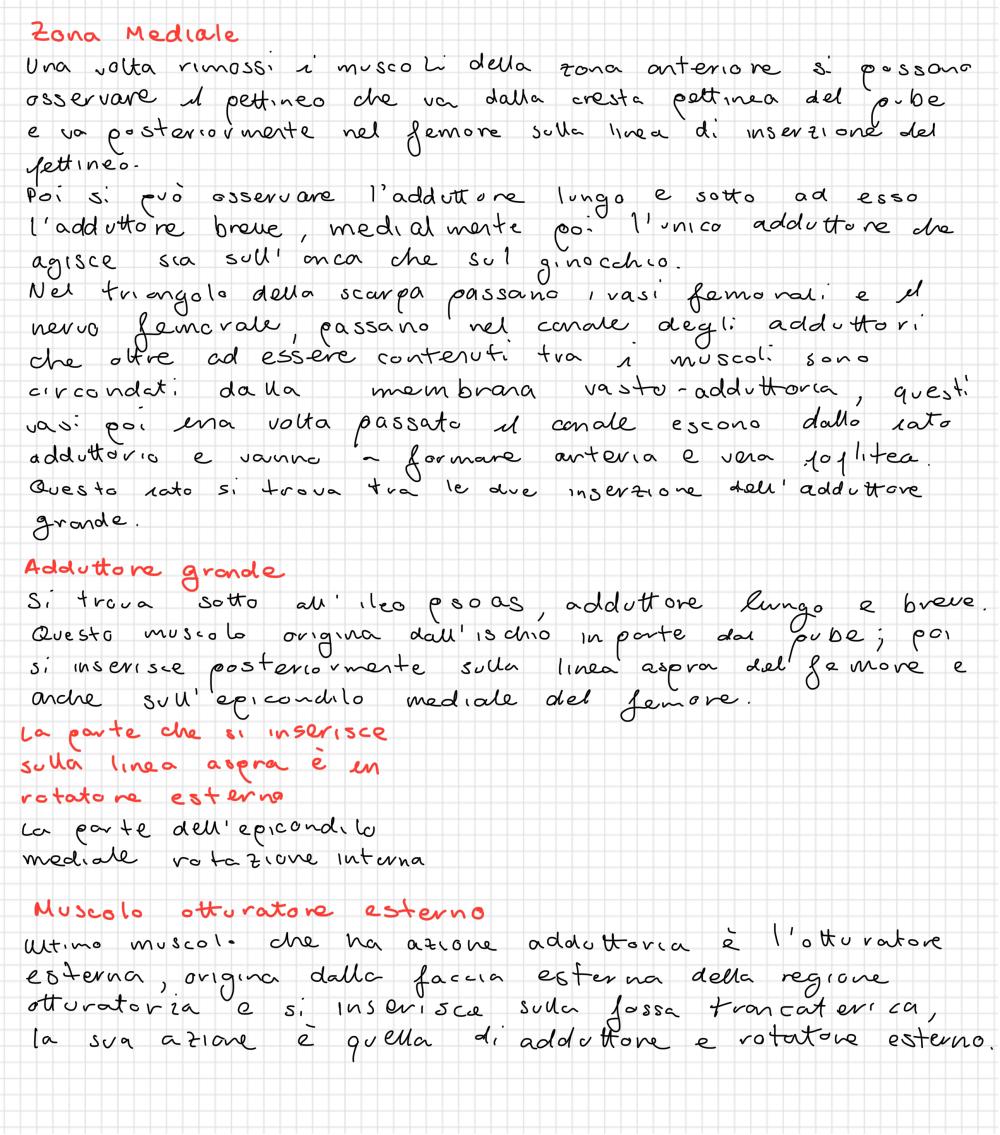 Zona Mediale
Una volta rimossi i muscoli della zona anteriore si possono
osservare il pettineo che va dalla cresta pettinea del pube
e va posteriormente nel femore sulla linea di inserzione del
pettineo.
Poi si può osservare l'adduttore lungo e sotto ad esso
l'adduttore breve, medialmente poi l'unico adduttore che
agisce sia sull'anca che sul ginocchio.
Nel triangolo della scarpa passano i vasi femorali e il
nervo femorale, passano nel canale degli adduttori
che oltre ad essere contenuti tra i muscoli sono
circondati dalla membrana vasto-adduttoria, questi
vasi poi una volta passato il canale escono dallo iato
adduttorio e vanno a formare arteria e vena poplitea.
Questo iato si trova tra le due inserzione dell'adduttore
grande.
Adduttore grande
Si trova sotto all'ileo psoas, adduttore lungo e breve.
Questo muscolo origina dall'ischio in parte dal pube; poi
si inserisce posteriormente sulla linea aspra del femore e
anche sull'epicondilo mediale del femore.
La parte che si inserisce
sulla linea aspra è un
rotatore esterno
La parte dell'epicondilo
mediale rotazione interna
Muscolo otturatore esterno
Ultimo muscolo che ha azione adduttoria è l'otturatore
esterna, origina dalla faccia esterna della regione
otturatoria e si inserisce sulla fossa troncaterica,
la sua azione è quella di adduttore e rotatore esterno.